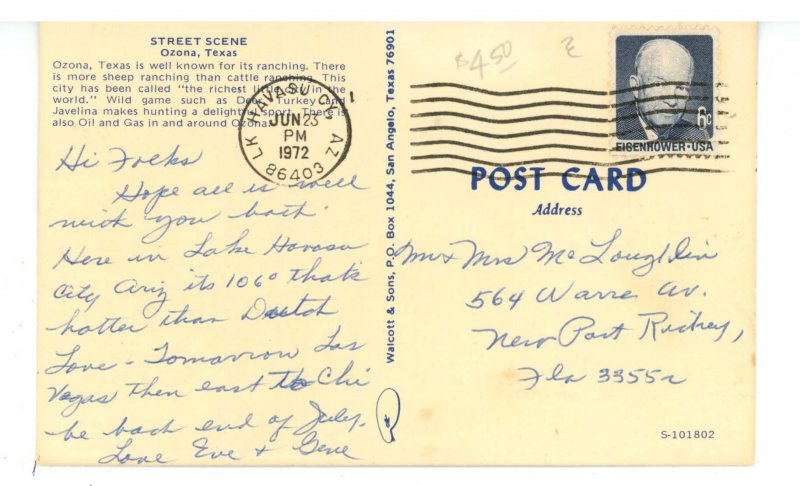 STREET SCENE
Ozona, Texas
Ozona, Texas is well known for its ranching. There
is more sheep ranching than cattle ranching. This
city has been called "the richest little city in the
world." Wild game such as Deer, Turkey and
Javelina makes hunting a delightful sport. There is
also Oil and Gas in and around Ozona.
Hi Folks
Hope all is well
with you both.
Here in Lake Havasu
City Ariz its 106° that's
hotter than Dutch
Love - Tomarrow Las
Vegas then east to Chi
be back end of July.
Love Eve & Gene
Walcott & Sons, P.O. Box 1044, San Angelo, Texas 76901
LK HAVASU CY, AZ
JUN 23
PM
1972
86403
$4.50
6c
EISENHOWER·USA
POST CARD
Address
Mr & Mrs McLoughlin
564 Warre Av.
New Port Richey,
Fla 33552
S-101802